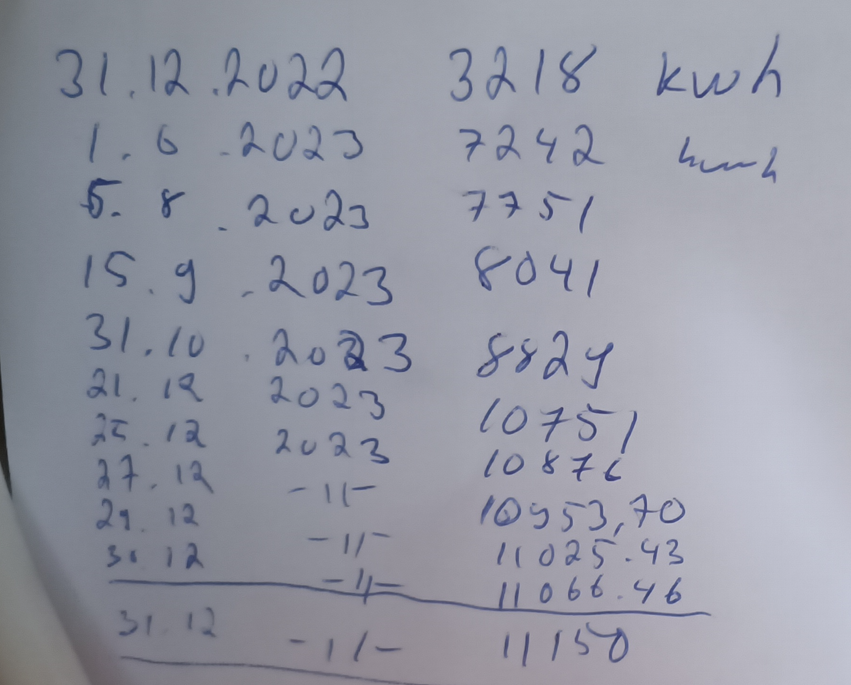 31.12.2022 3218 kwh
1.6.2023 7242 kwh
5.8.2023 7751
15.9.2023 8041
31.10.2023 8829
21.12 2023 10751
25.12 2023 10876
27.12 -11- 10953,70
29.12 -11- 11025.43
31.12 -11- 11066.46
31.12 -11- 11150